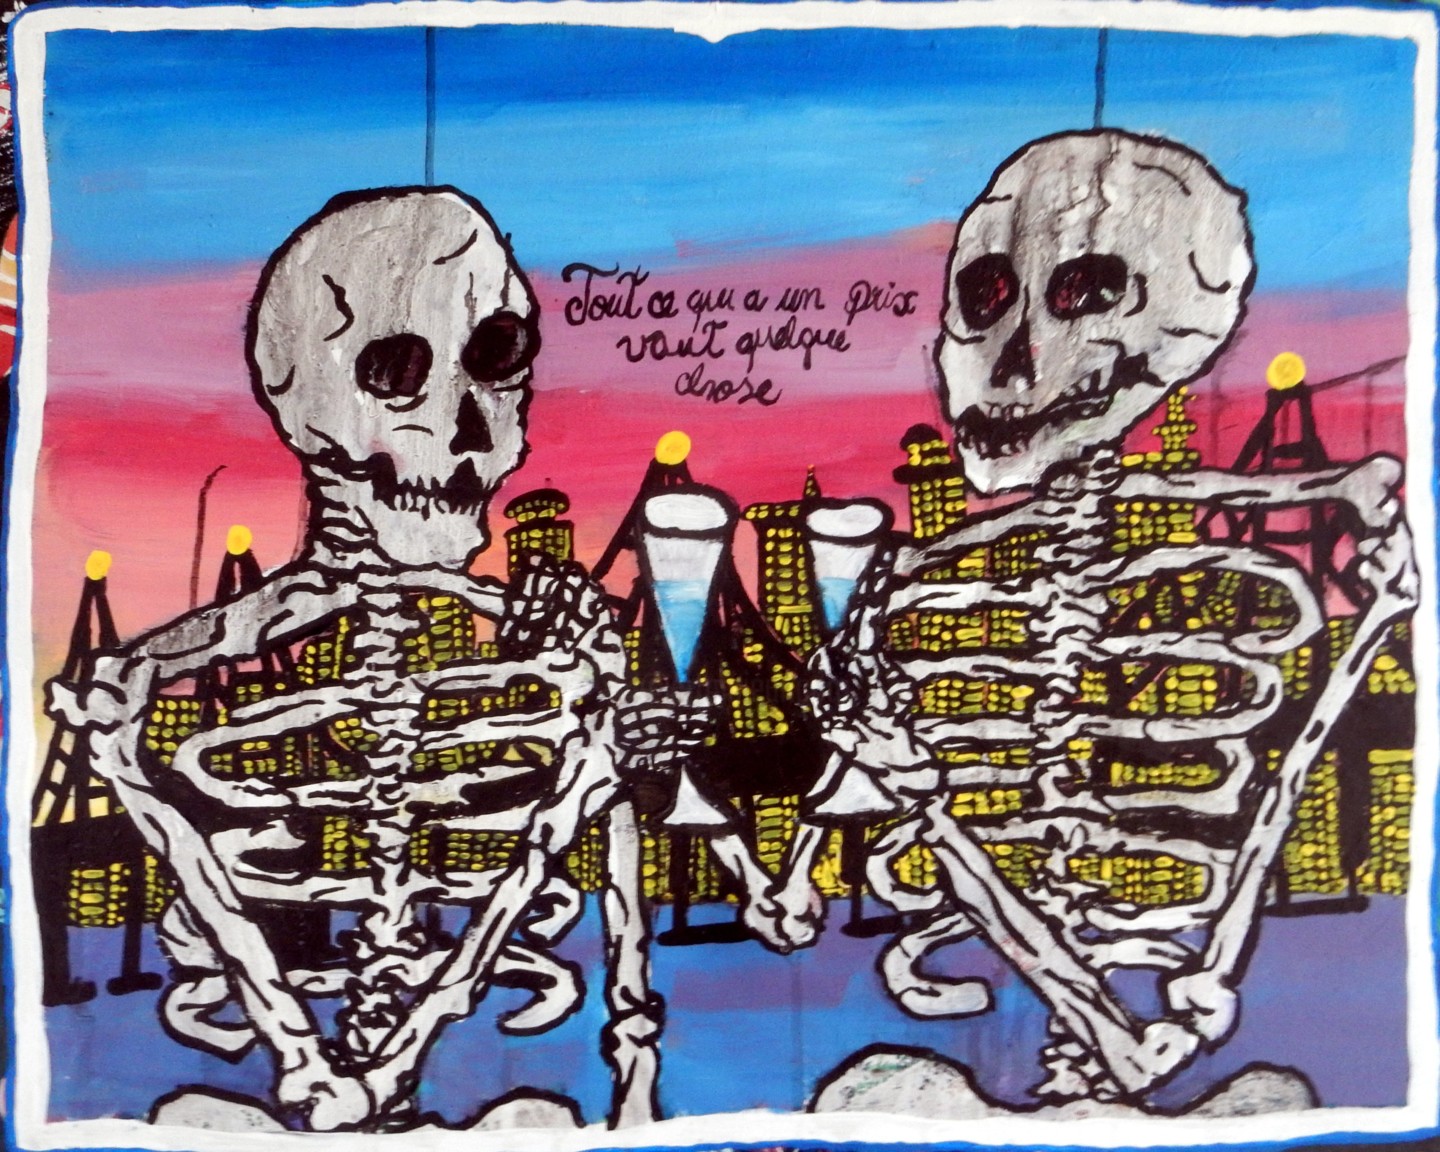 Tout ce qui a un prix
vaut quelque
chose